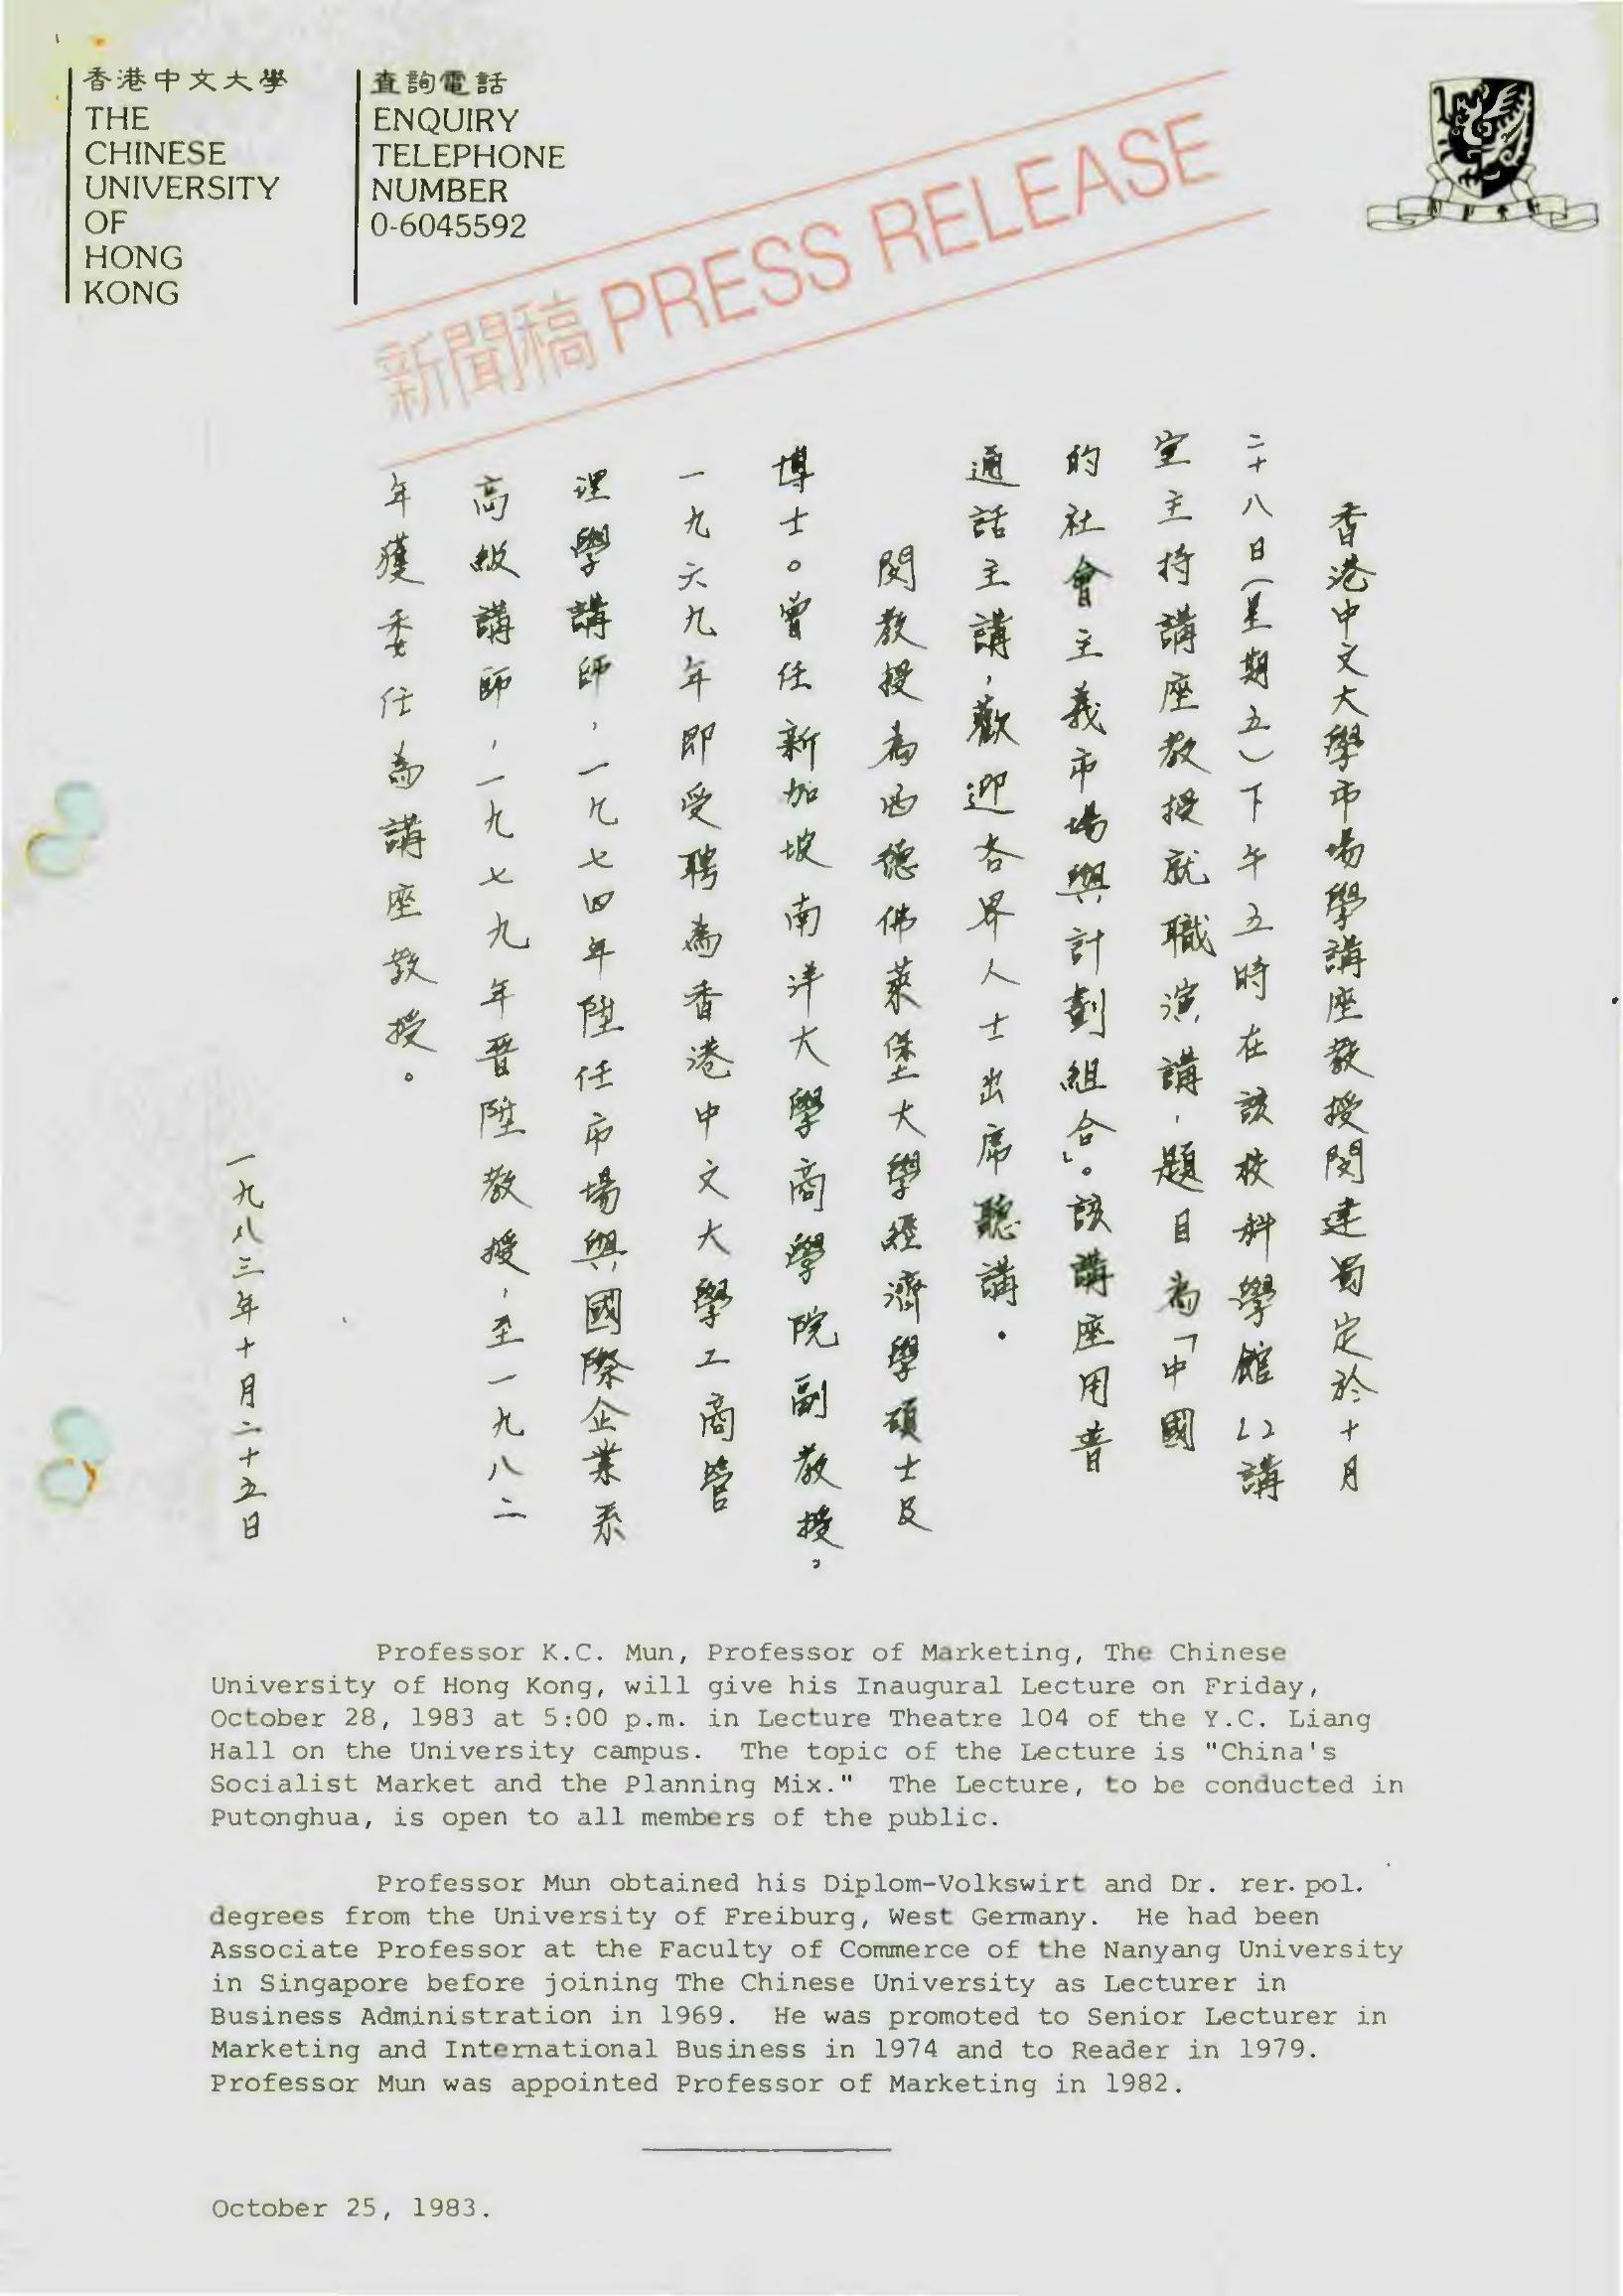 香港中文大學
THE
CHINESE
UNIVERSITY
OF
HONG
KONG
查詢電話
ENQUIRY
TELEPHONE
NUMBER
0-6045592
新聞稿 PRESS RELEASE
香港中文大學市場學講座教授閔建蜀定於十月
二十八日(星期五)下午五時在該校科學館L2講
室主持講座教授就職演講,題目為「中國
的社會主義市場與計劃組合」。該講座用普
通話主講,歡迎各界人士出席聽講。
閔教授為西德佛萊堡大學經濟學碩士及
博士。曾任新加坡南洋大學商學院副教授,
一九六九年即受聘為香港中文大學工商管
理學講師,一九七四年陞任市場與國際企業系
高級講師,一九七九年晉陞教授,至一九八二
年獲委任為講座教授。
一九八三年十月二十五日
Professor K.C. Mun, Professor of Marketing, The Chinese
University of Hong Kong, will give his Inaugural Lecture on Friday,
October 28, 1983 at 5:00 p.m. in Lecture Theatre 104 of the Y.C. Liang
Hall on the University campus. The topic of the Lecture is "China's
Socialist Market and the Planning Mix." The Lecture, to be conducted in
Putonghua, is open to all members of the public.
Professor Mun obtained his Diplom-Volkswirt and Dr. rer. pol.
degrees from the University of Freiburg, West Germany. He had been
Associate Professor at the Faculty of Commerce of the Nanyang University
in Singapore before joining The Chinese University as Lecturer in
Business Administration in 1969. He was promoted to Senior Lecturer in
Marketing and International Business in 1974 and to Reader in 1979.
Professor Mun was appointed Professor of Marketing in 1982.
October 25, 1983.